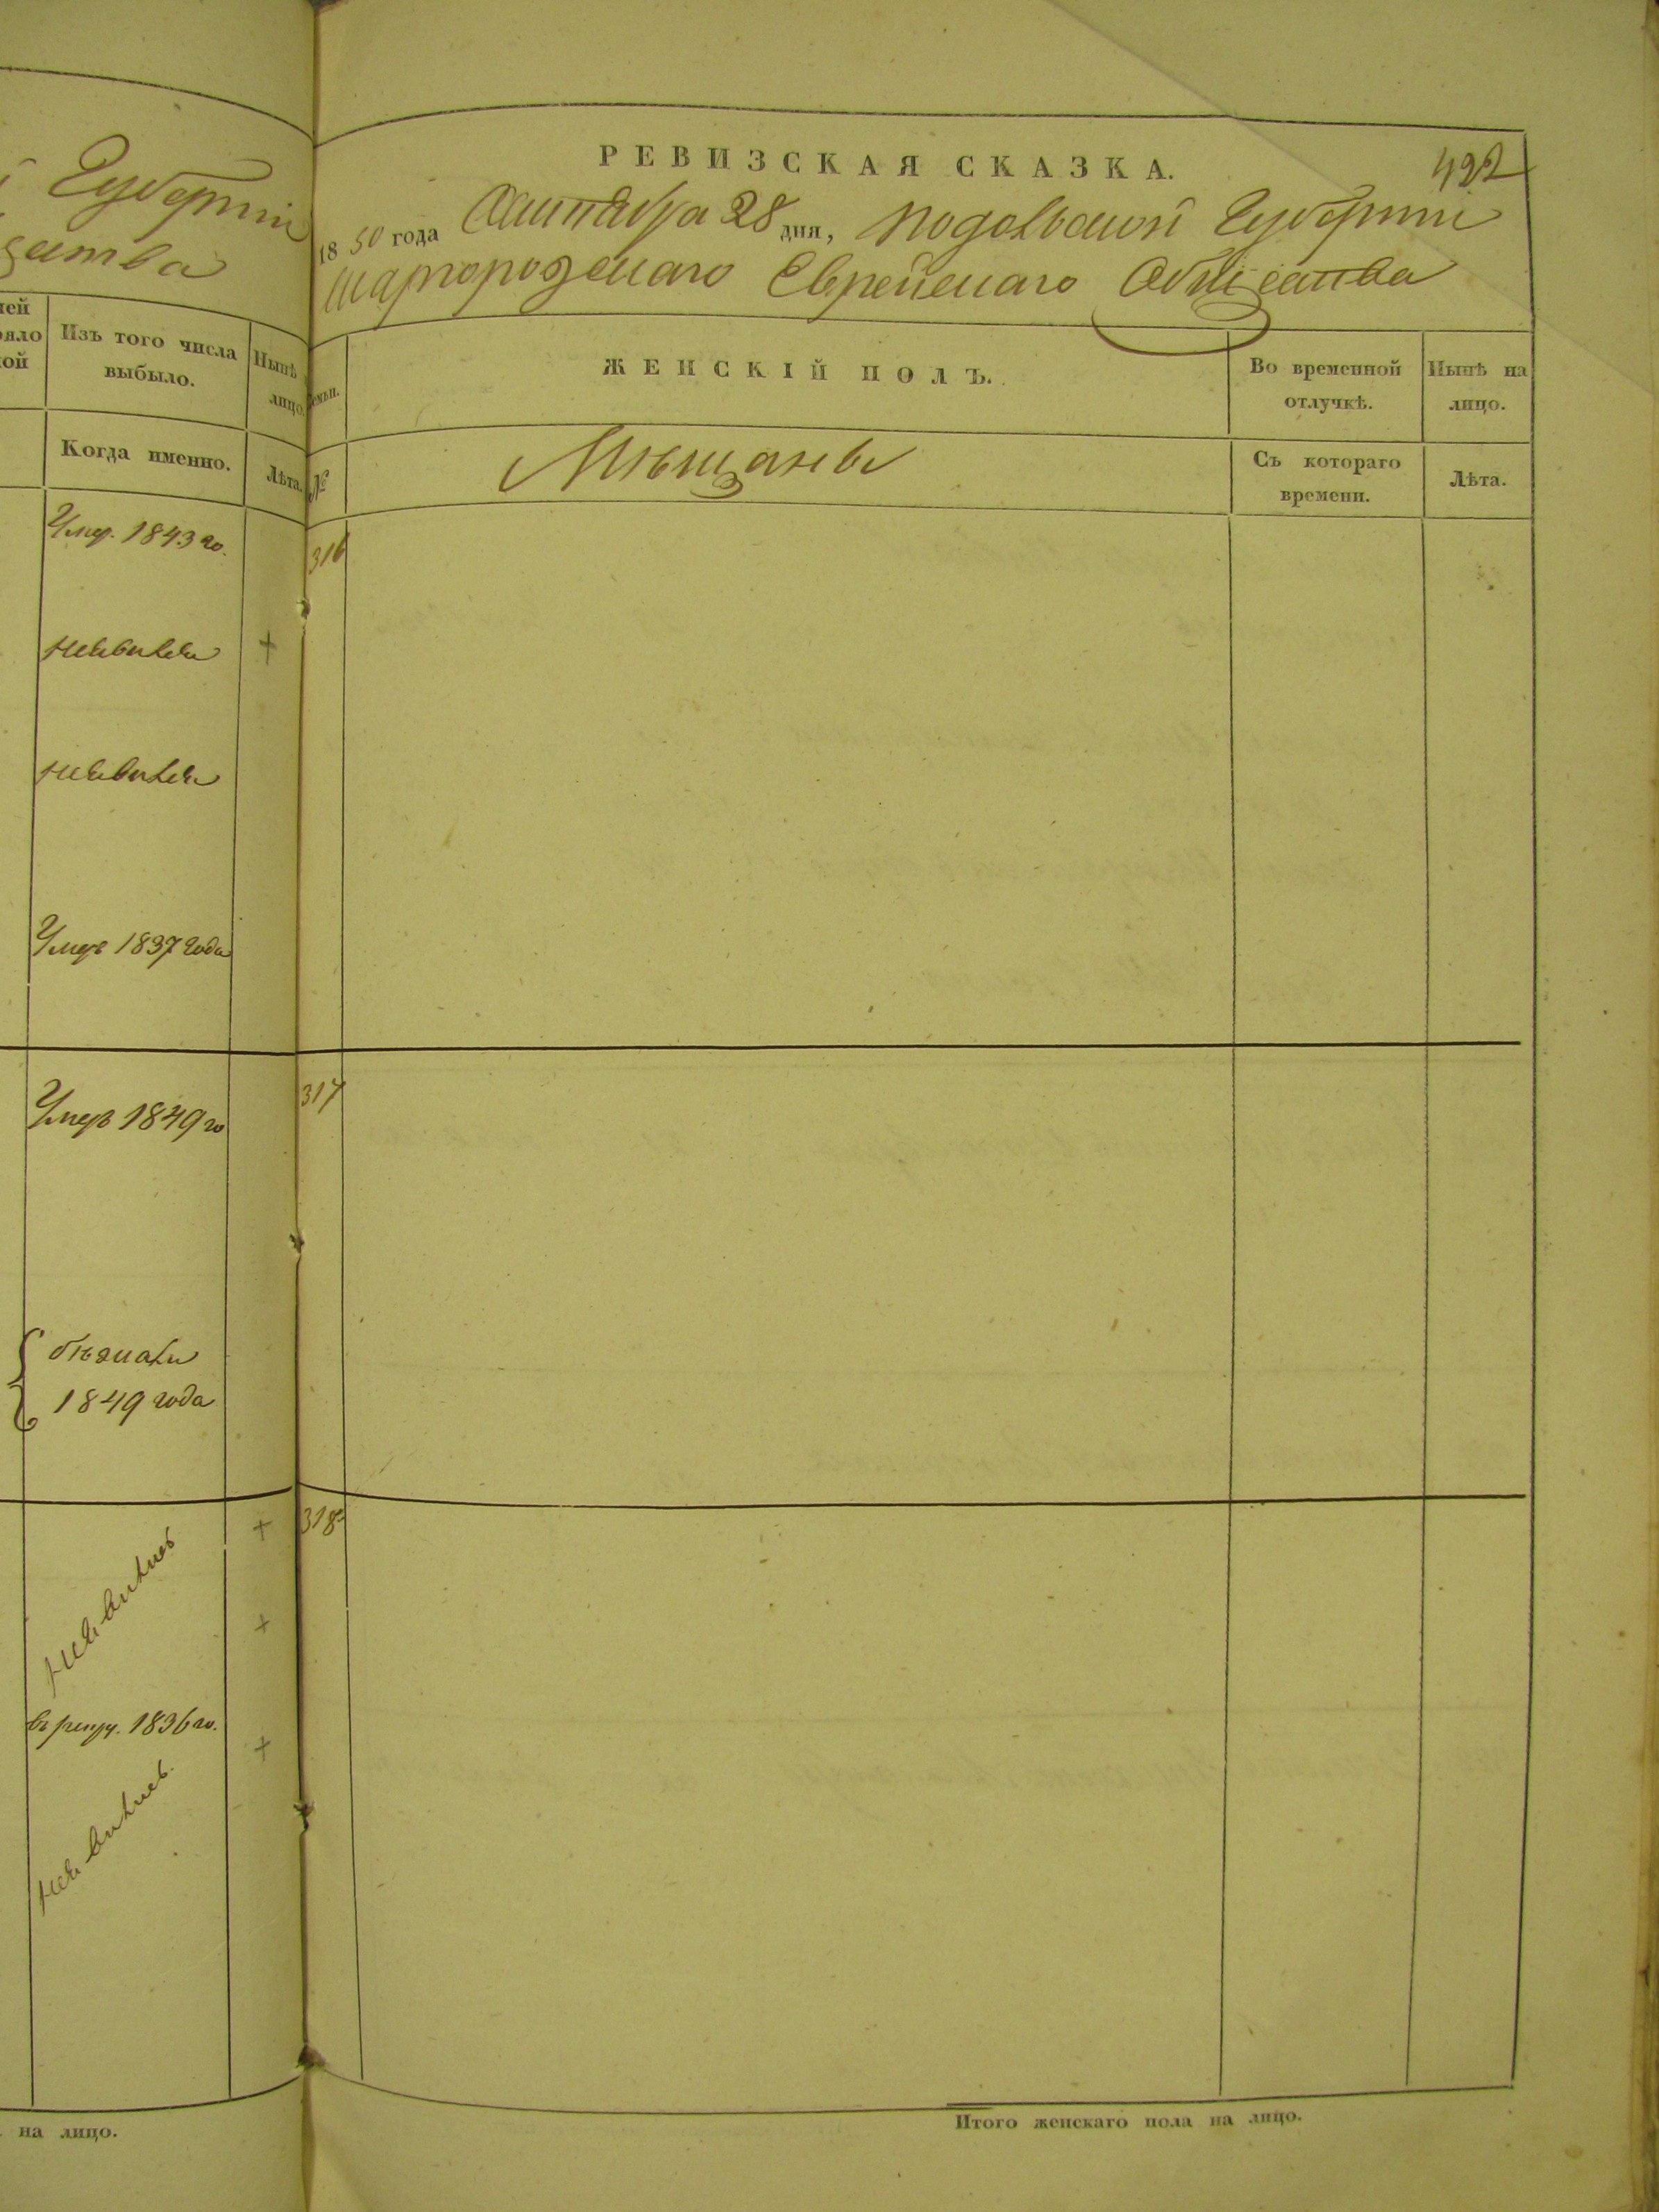 Губерніи
ства
ней
ояло
ной
Изъ того числа
выбыло.
Нынѣ
лицо.
Когда именно.
Лѣта.
Умер. 1843 го.
неявился +
неявился
Умеръ 1837 года
Умеръ 1849 го
бѣжали
1849 года
неявились +
+
въ рекру. 1836 го.
+
неявились.
на лицо.
РЕВИЗСКАЯ СКАЗКА.
492
1850 года Октября 28 дня, Подольской Губерніи
Шаргородскаго Еврейскаго Общества
Семьи.
ЖЕНСКІЙ ПОЛЪ.
Во временной
отлучкѣ.
Нынѣ на
лицо.
№
Мѣщане
Съ котораго
времени.
Лѣта.
316
317
318
Итого женскаго пола на лицо.